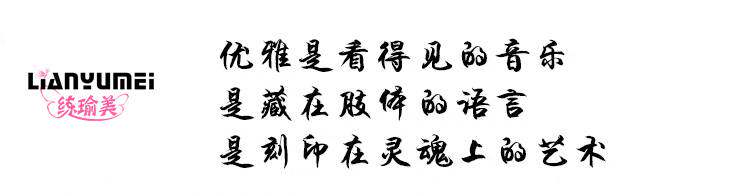 LiANYUMEi
练瑜美
优雅是看得见的音乐
是藏在肢体的语言
是刻印在灵魂上的艺术